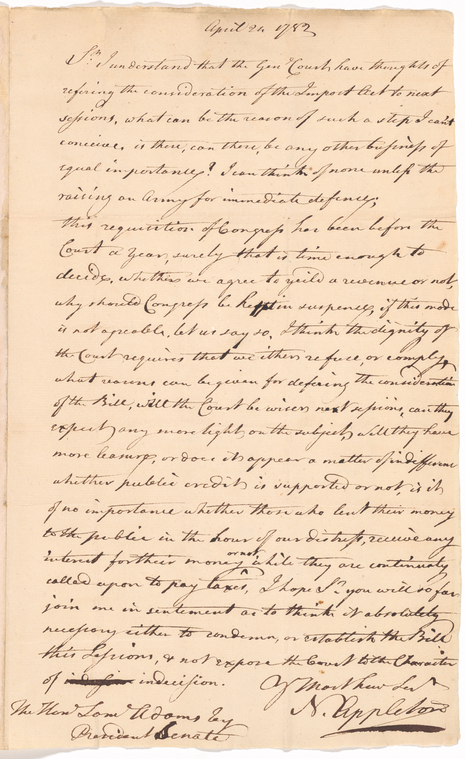 April 24 1782
Sr. I understand that the Genl Court have thoughts of
refering the consideration of the Impost Act to next
sessions, what can be the reason of such a step I can't
conceive. is there, can there, be any other business of
equal importance? I can think of none unless the
raising an Army for immediate defence;
this requisition of Congress has been before the
Court a Year, surely that is time enough to
decide, whether we agree to yeild a revenue or not,
why should Congress be kept in suspence, if this mode
is not agreable, let us say so. I think the dignity of
the Court requires that we either refuse, or comply,
what reasons can be given for defering the consideration
of the Bill, will the Court be wiser next sessions, can they
expect any more light on the subject, will they have
more leasure, or does it appear a matter of indifference
whether public credit is supported or not, is it
of no importance whether those who lent their money
to the public in the hour of our distress, receive any
interest for their money or not, while they are continualy
called upon to pay taxes, I hope Sr. you will so far
join me in sentement as to think it absolutely
necessary either to condemn, or establish the Bill
this Sessions, & not expose the Court to the Character
of indecision.
Yr Most hum Sert
N. Appleton
The Honl Saml Adams Esq
President Senate